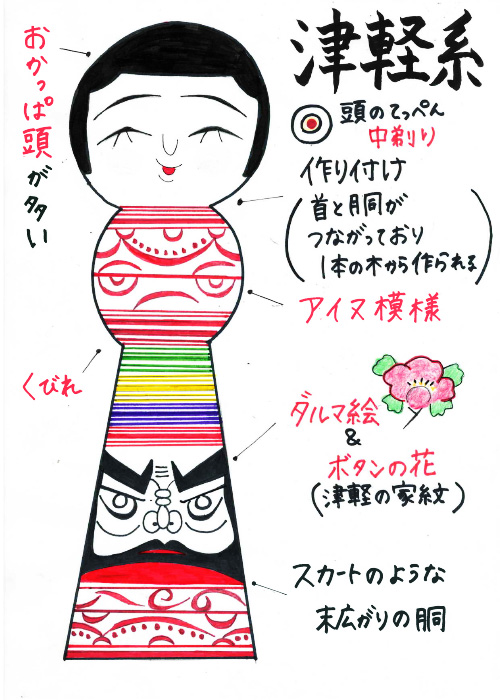 津軽系
おかっぱ頭が多い
頭のてっぺん
中剃り
作り付け
(首と胴が
つながっており
1本の木から作られる)
アイヌ模様
くびれ
ダルマ絵
&
ボタンの花
(津軽の家紋)
スカートのような
末広がりの胴